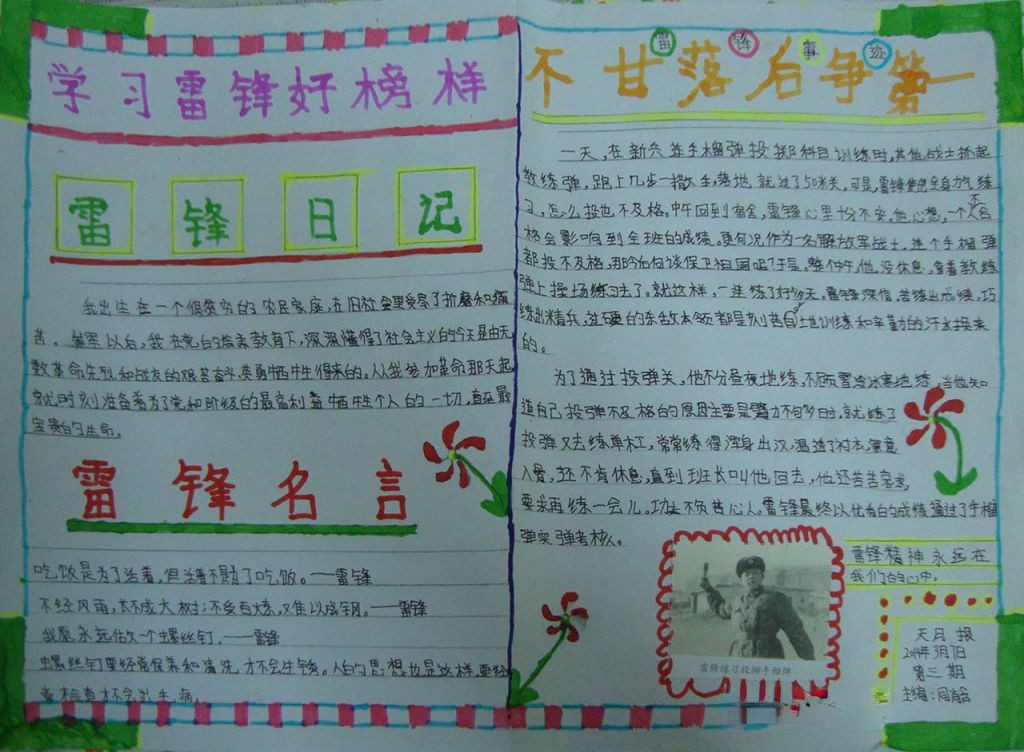 学习雷锋好榜样
雷锋日记
我出生在一个很贫穷的农民家庭,在旧社会里受尽了折磨和痛
苦。参军以后,我在党的培养教育下,深深懂得了社会主义的今天是由无
数革命先烈和战友的艰苦奋斗,英勇牺牲得来的。从我参加革命那天起,
就时刻准备着为了党和阶级的最高利益牺牲个人的一切,直至最
宝贵的生命。
雷锋名言
吃饭是为了活着,但活着不是为了吃饭。——雷锋
不经风雨,长不成大树;不受百炼,难以成钢。——雷锋
我愿永远做一个螺丝钉。——雷锋
螺丝钉要经常保养和清洗,才不会生锈。人的思想也是这样,要经
常检查才不会出毛病。
雷锋事迹
不甘落后争第一
一天,在新兵连手榴弹投掷科目训练时,其他战士抓起
教练弹,跑上几步一撒手,落地就过了50米关。可是,雷锋使出全身力气练
习,怎么投也不及格。中午回到宿舍,雷锋心里十分不安,他心想,一个人不合
格会影响到全班的成绩,更何况,作为一名解放军战士,连个手榴弹
都投不及格,那今后何谈保卫祖国呢?于是,整个中午,他没休息,拿着教练
弹上操场练习去了。就这样,一连练了好多天。雷锋深信,苦练出成绩,巧
练出精兵,过硬的杀敌本领都是刻苦自地训练和辛勤的汗水换来
的。
为了通过投弹关,他不分昼夜地练,不顾雪冷冰寒地练,当他知
道自己投弹不及格的原因主要是臂力不够时,就练了
投弹又去练单杠,常常练得浑身出汗,湿透了衬衣,寒意
入骨,还不肯休息,直到班长叫他回去,他还苦苦哀求,
要求再练一会儿。功夫不负苦心人。雷锋最终以优秀的成绩通过了手榴
弹实弹考核。
雷锋练习投掷手榴弹
雷锋精神永远在
我们的心中。
天月报
2014年3月1日
第三期
主编: